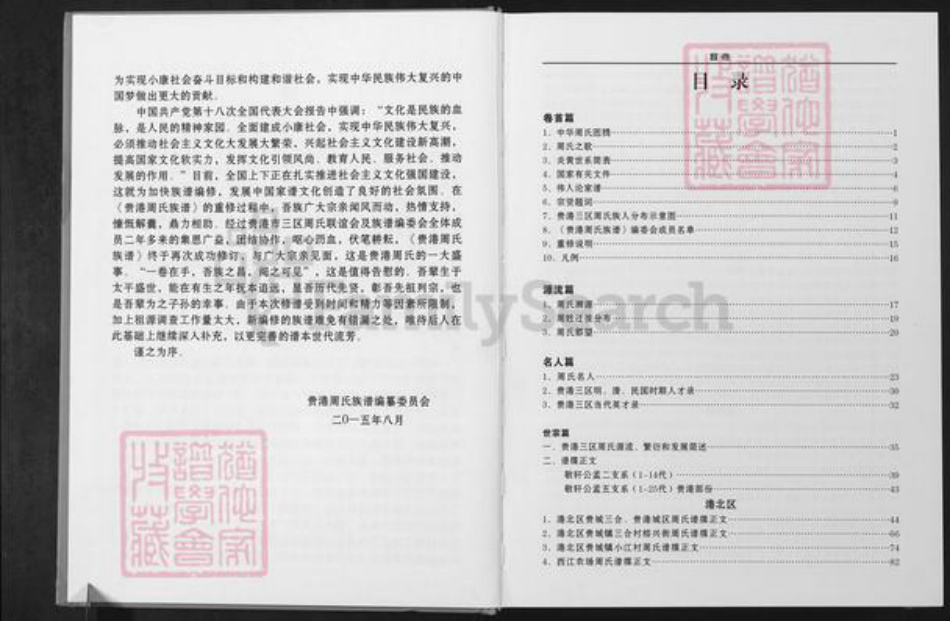 为实现小康社会奋斗目标和构建和谐社会，实现中华民族伟大复兴的中
国梦做出更大的贡献．
中国共产党第十八次全国代表大会报告中强调：“文化是民族的血
脉，是人民的精神家园．全面建成小康社会，实现中华民族伟大复兴，
必须推动社会主义文化大发展大繁荣，兴起社会主义文化建设新高潮，
提高国家文化软实力，发挥文化引领风尚、教育人民、服务社会、推动
发展的作用．”目前，全国上下正在扎实推进社会主义文化强国建设，
这就为加快族谱编修，发展中国家谱文化创造了良好的社会氛围．在
《贵港周氏族谱》的重修过程中，吾族广大宗亲闻风而动，热情支持，
慷慨解囊，鼎力相助．经过贵港市三区周氏联谊会及族谱编委会全体成
员二年多来的集思广益，团结协作，呕心沥血，伏笔耕耘，《贵港周氏
族谱》终于再次成功修订，与广大宗亲见面，这是贵港周氏的一大盛
事．“一卷在手，吾族之昌，阅之可见”，这是值得告慰的．吾辈生于
太平盛世，能在有生之年祝本追远，显吾历代先贤，彰吾先祖列宗，也
是吾辈为之子孙的幸事．由于本次修谱受到时间和精力等因素所限制，
加上祖源调查工作量太大，新编修的族谱难免有错漏之处，唯待后人在
此基础上继续深入补充，以更完善的谱本世代流芳．
谨之为序．
贵港周氏族谱编纂委员会
二0一五年八月
目录
目 录
卷首篇
1．中华周氏图腾 1
2．周氏之歌 2
3．炎黄世系简表 3
4．国家有关文件 4
5．伟人论家谱 6
6．宗贤题词 9
7．贵港三区周氏族人分布示意图 11
8．《贵港周氏族谱》编委会成员名单 12
9．重修说明 15
10．凡例 16
源流篇
1．周氏溯源 17
2．周姓迁徙分布 19
3．周氏郡望 20
名人篇
1．周氏名人 23
2．贵港三区明、清、民国时期人才录 30
3．贵港三区当代英才录 32
世宗篇
一．贵港三区周氏源流、繁衍和发展简述 35
二．谱牒正文
敬轩公孟二支系（1-14代） 39
敬轩公孟五支系（1-25代）贵港部份 43
港北区
1．港北区贵城三合、贵港城区周氏谱牒正文 44
2．港北区贵城镇三合村榕兴街周氏谱牒正文 66
3．港北区贵城镇小江村周氏谱牒正文 74
4．西江农场周氏谱牒正文 82
FamilySearch